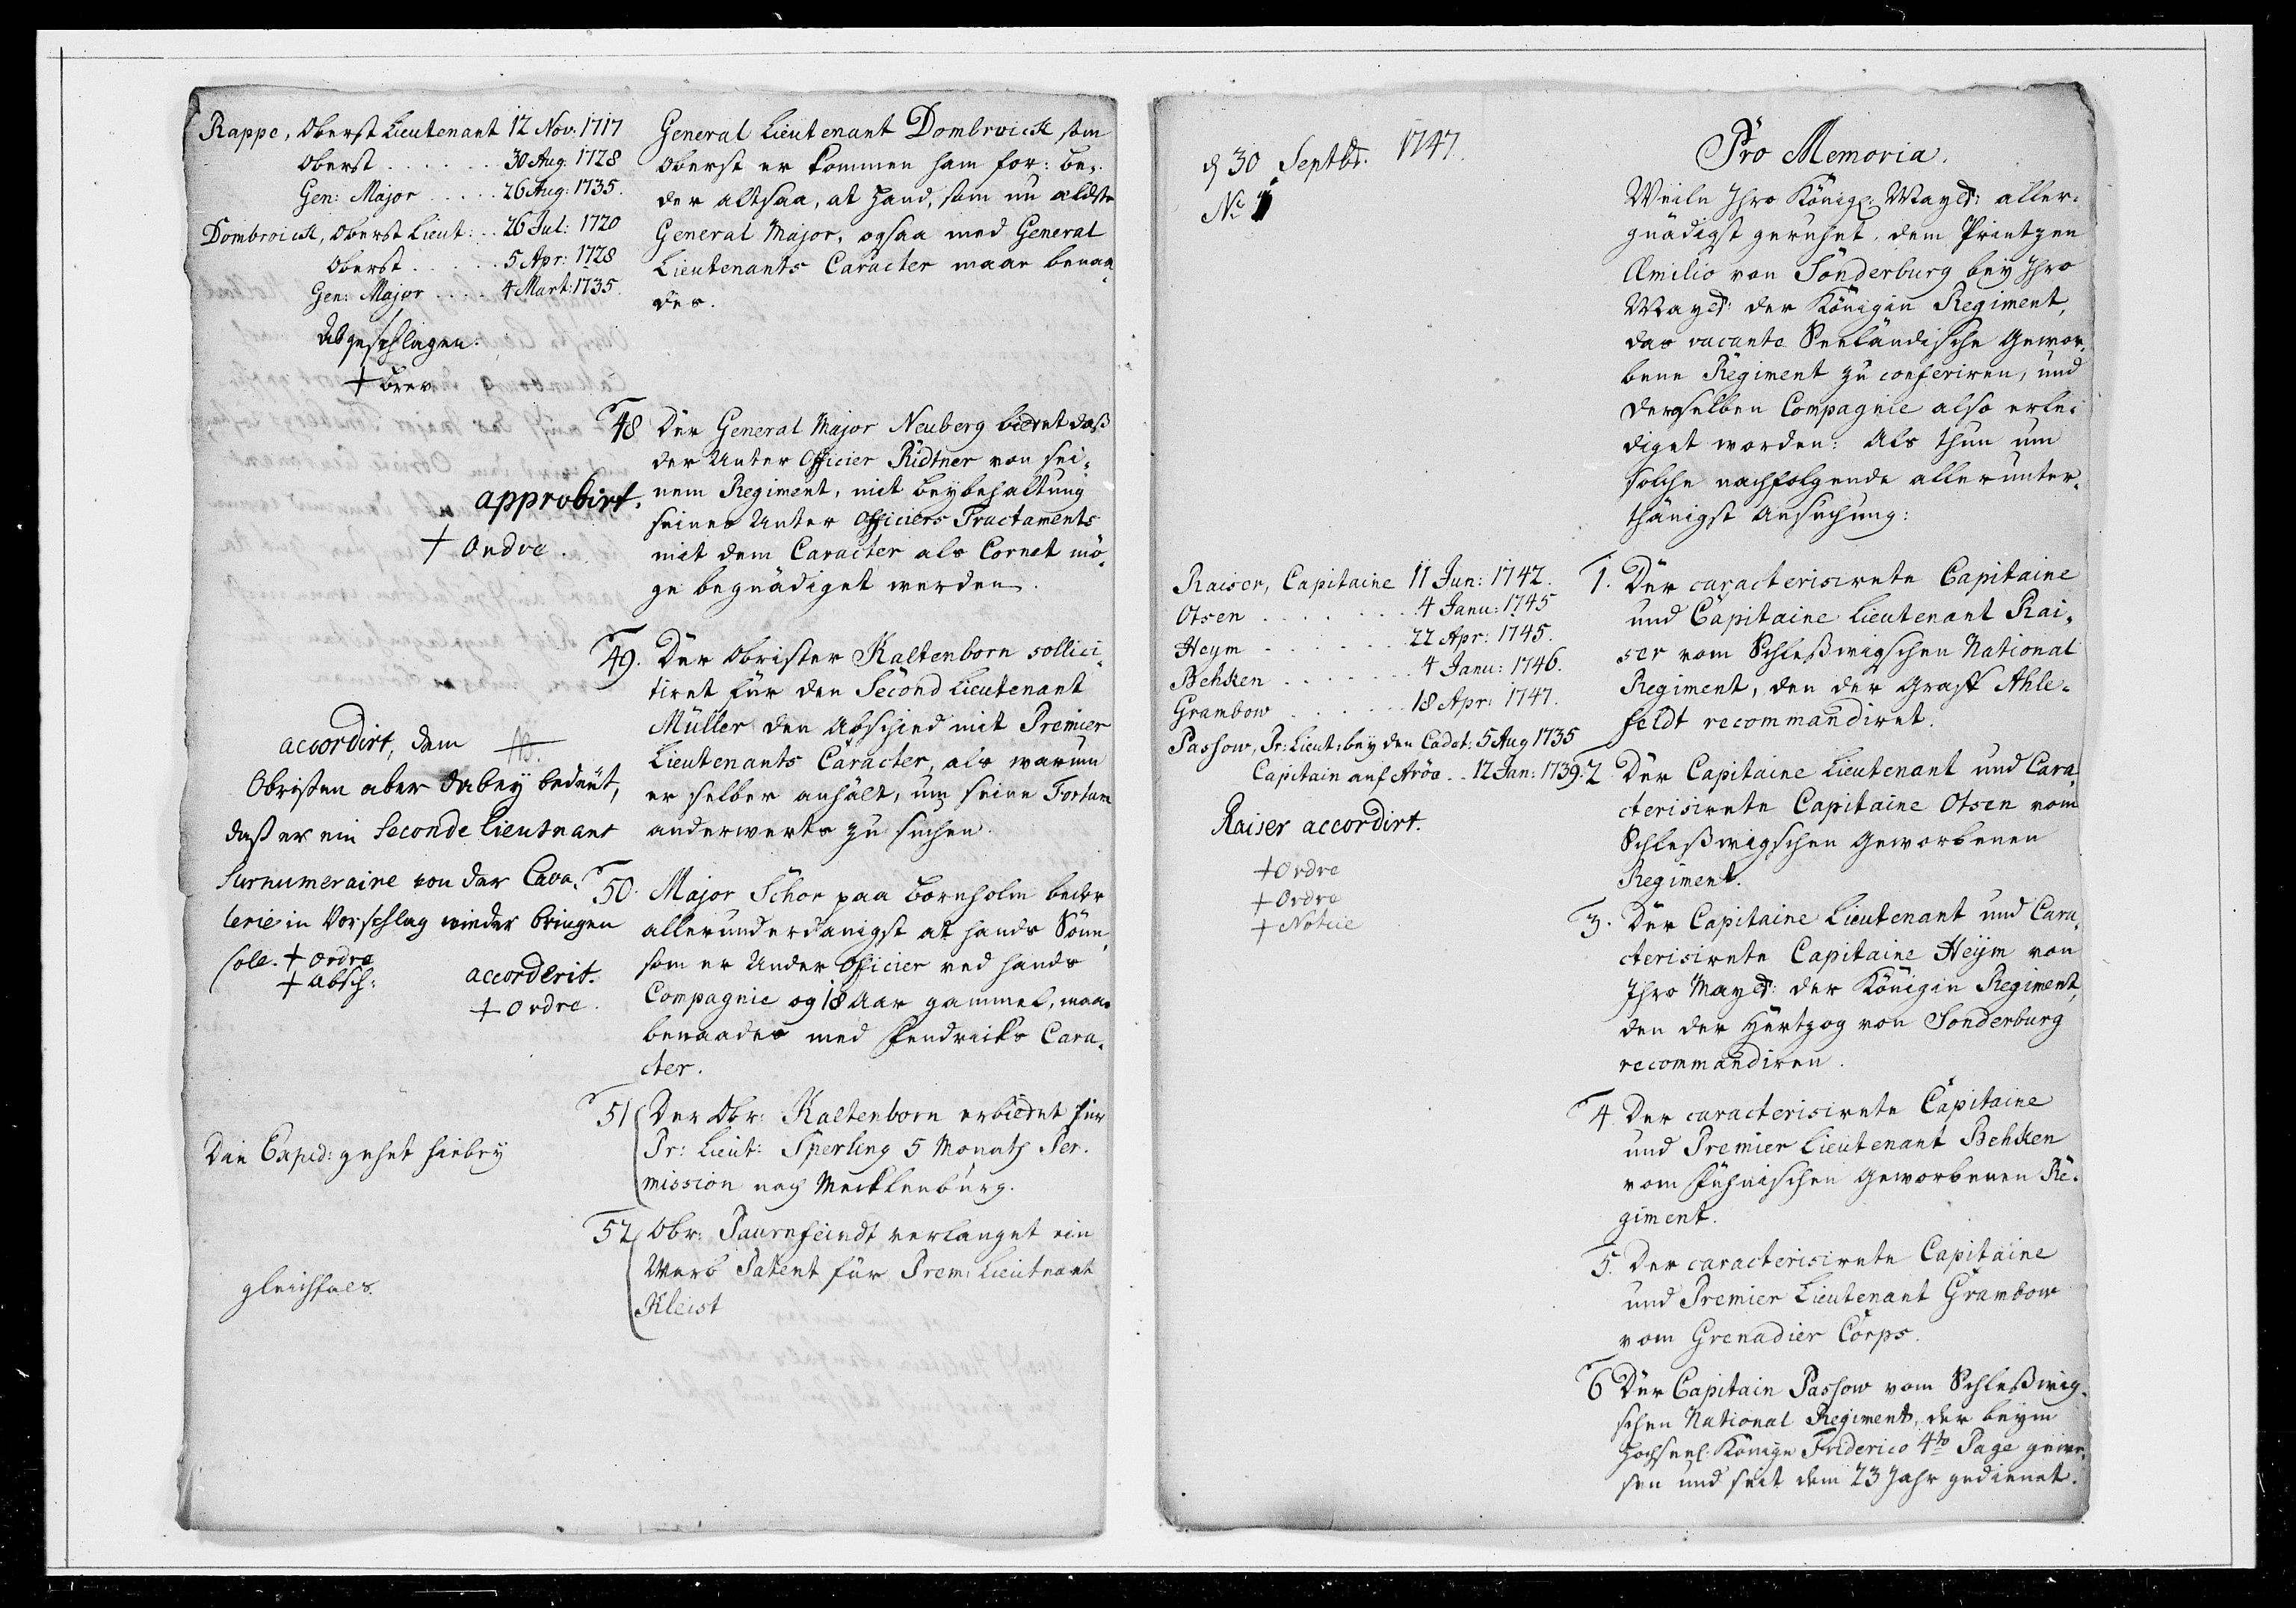 Rappe, Oberst Lieutenant 12 Nov: 1717
Oberst . . . . . . 30 Aug. 1728
Gen: Major . . . . . 26 Aug: 1735.
Dombroick, Oberst Lieut: . . 26 Jul: 1720
Oberst . . . . . 5 Apr: 1728
Gen: Major . . . . 4 Mart: 1735.
Abgeschlagen.
+ brev
General Lieutenant Dombroick som
Oberst er kommen ham for: be,
der altsaa, at hand, som nu ældste
General Major, ogsaa med General
Lieutenants Caracter maae benaa,
des.
approbirt.
+ Ordre.
48 Der General Major Neuberg bidtet daß
der Unter Officier Rüdtner von sei,
nem Regiment, mit beybehaltung
seines Unter Officiers Tractaments
mit dem Caracter als Cornet mö,
ge begnädiget werden.
accordirt, dem
Obristen aber dabey bedeut,
daß er ein Seconde Lieutnant
Surnumeraire von der Cava,
lerie in Vorschlag wieder bringen
solle. + Ordre
+ Absch:
49. Der Obrister Kaltenborn sollici,
tiret für den Second Lieutenant
Müller den Abschied mit Premier
Lieutenants Caracter, als warum
er selber anhält, um seine Fortun
anderwerts zu suchen.
accorderit.
+ Ordre.
50. Major Schor paa Bornholm beder
allerunderdanigst at hands Sönn,
som er Under Officier ved hands
Compagnie og 18 Aar gammel, maae
benaades med Fendricks Cara,
cter.
Die Exped: gehet hiebey
51 Der Obr: Kaltenborn erbidtet für
Pr: Lieut: Sperling 5 Monath Per,
mission nach Mecklenburg.
gleichfals.
52 Obr: Paurnfeindt verlanget ein
Werb Patent für Prem: Lieutnant
Kleist
d 30 Septbr. 1747.
No 1
Pro Memoria.
Weiln Ihro Königl: Mayet: aller,
gnädigst geruhet, dem Printzen
Æmilio von Sonderburg bey Ihro
Mayet: der Königin Regiment,
das vacante Seeländische Gewor,
bene Regiment zu conferiren, und
dergselben Compagnie also erle,
diget worden: Als thun um
solche nachfolgende allerunter,
thänigst Ansuchung:
Raiser, Capitaine 11 Jun: 1742.
Otsen . . . . . . 4 Janu: 1745
Heym . . . . . . 22 Apr: 1745.
Behken . . . . . . 4 Janu: 1746.
Grambow . . . . . 18 Apr: 1747.
Passow, Pr: Lieut: bey den Cadet: 5 Aug 1735
Capitain auf Aröa . . 12 Jan: 1739.
Raiser accordirt.
+ Ordre
+ Ordre
+ Notice
1. Der caracterisirete Capitaine
und Capitaine Lieutenant Rai,
ser vom Schleßwigschen National
Regiment, den der Graff Ahle,
feldt recommandiret.
2 Der Capitaine Lieutenant und Cara
cterisirete Capitaine Otsen vom
Schleßwigschen Geworbenen
Regiment.
3. Der Capitaine Lieutenant und Cara,
cterisirete Capitaine Heym von
Ihro Mayet: der Königin Regiment,
den der Hertzog von Sonderburg
recommandiren.
4 Der caracterisirete Capitaine
und Premier Lieutenant Behken
vom Fühnischen Geworbenen Re,
giment.
5. Der caracterisirete Capitaine
und Premier Lieutenant Grambow
vom Grenadier Corps.
6 Der Capitain Passow vom Schleßwig,
schen National Regiment, der beym
Hochseel: Könige Friderico 4to Page gewe,
sen und seit dem 23 Jahr gedienet.